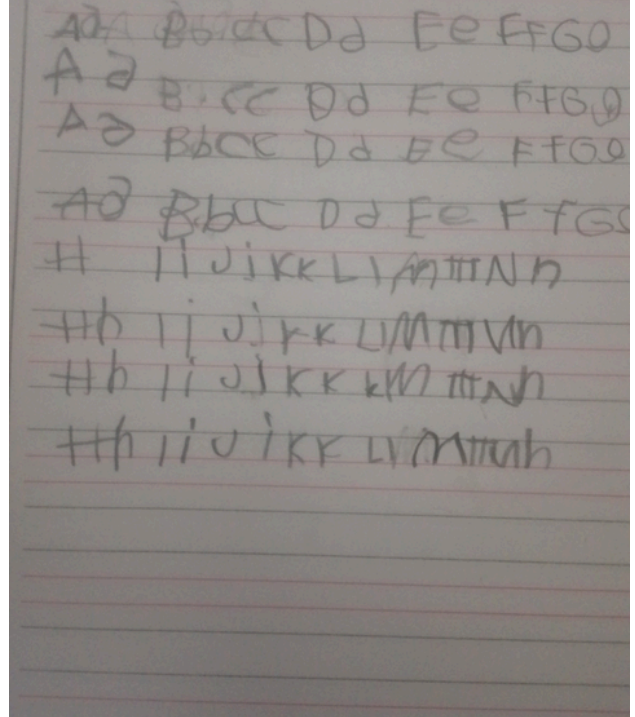 Aa Bb Cc Dd Ee Ff G g
A a B Cc Dd Ee Ff G g
A a Bb Cc Dd Ee Ff G g
Aa Bb Cc Dd Ee F f G
H Ii Jj Kk Ll Mm N n
Hh Ii Jj Kk Ll Mm Nn
Hh Ii Jj Kk Mm Nn
Hh Ii Jj Kk Ll Mm Nn